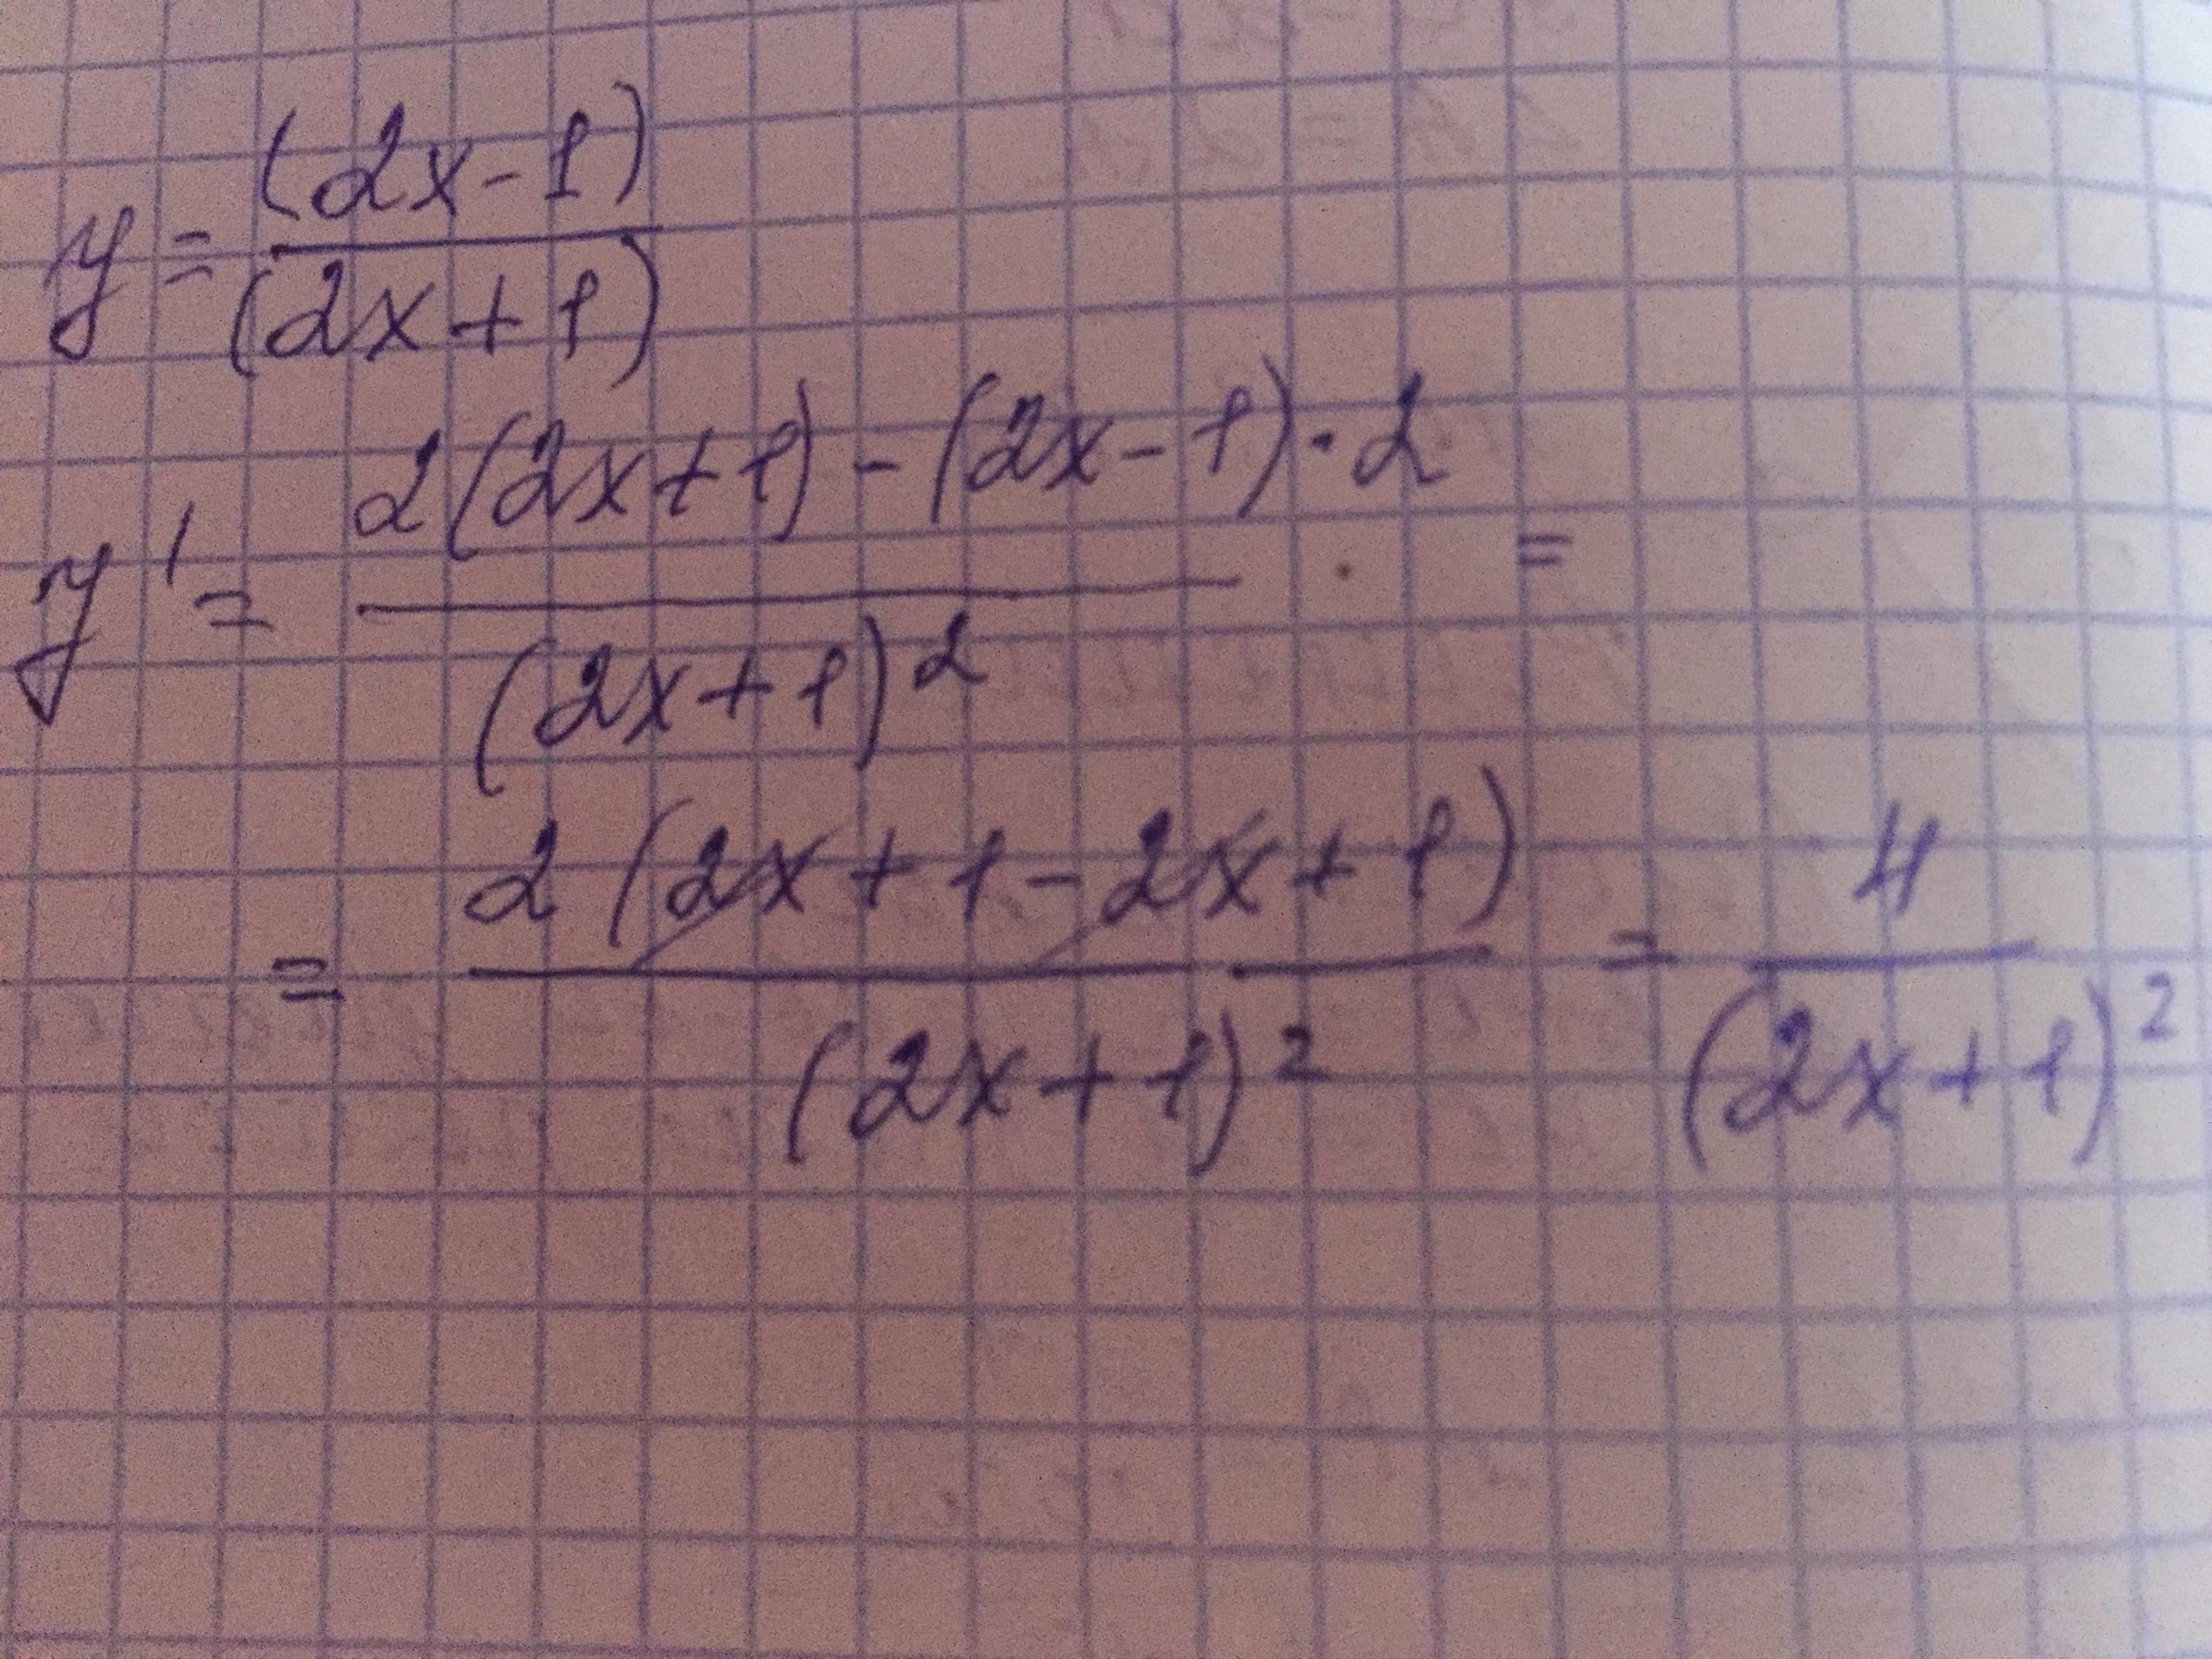 y = (2x-1)/(2x+1)
y' = (2(2x+1) - (2x-1)·2)/(2x+1)² =
= (2(2x+1-2x+1))/(2x+1)² = 4/(2x+1)²